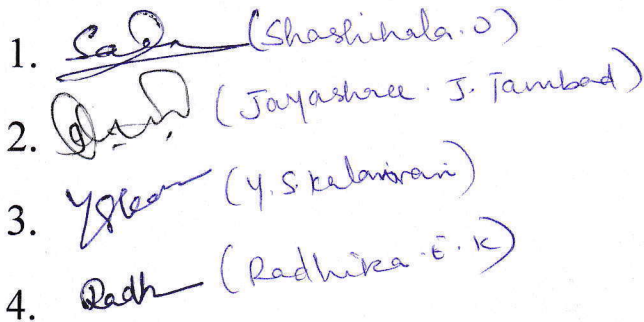 1. (Shashikala.O)
2. (Jayashree. J. Tambad)
3. (Y.S kalanivani)
4. Radh (Radhika. E. K)